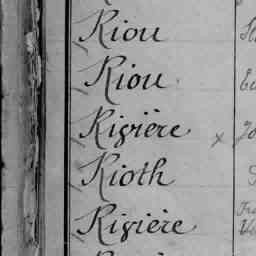 Riou
Riou
Rivière x
Rioth
Rivière